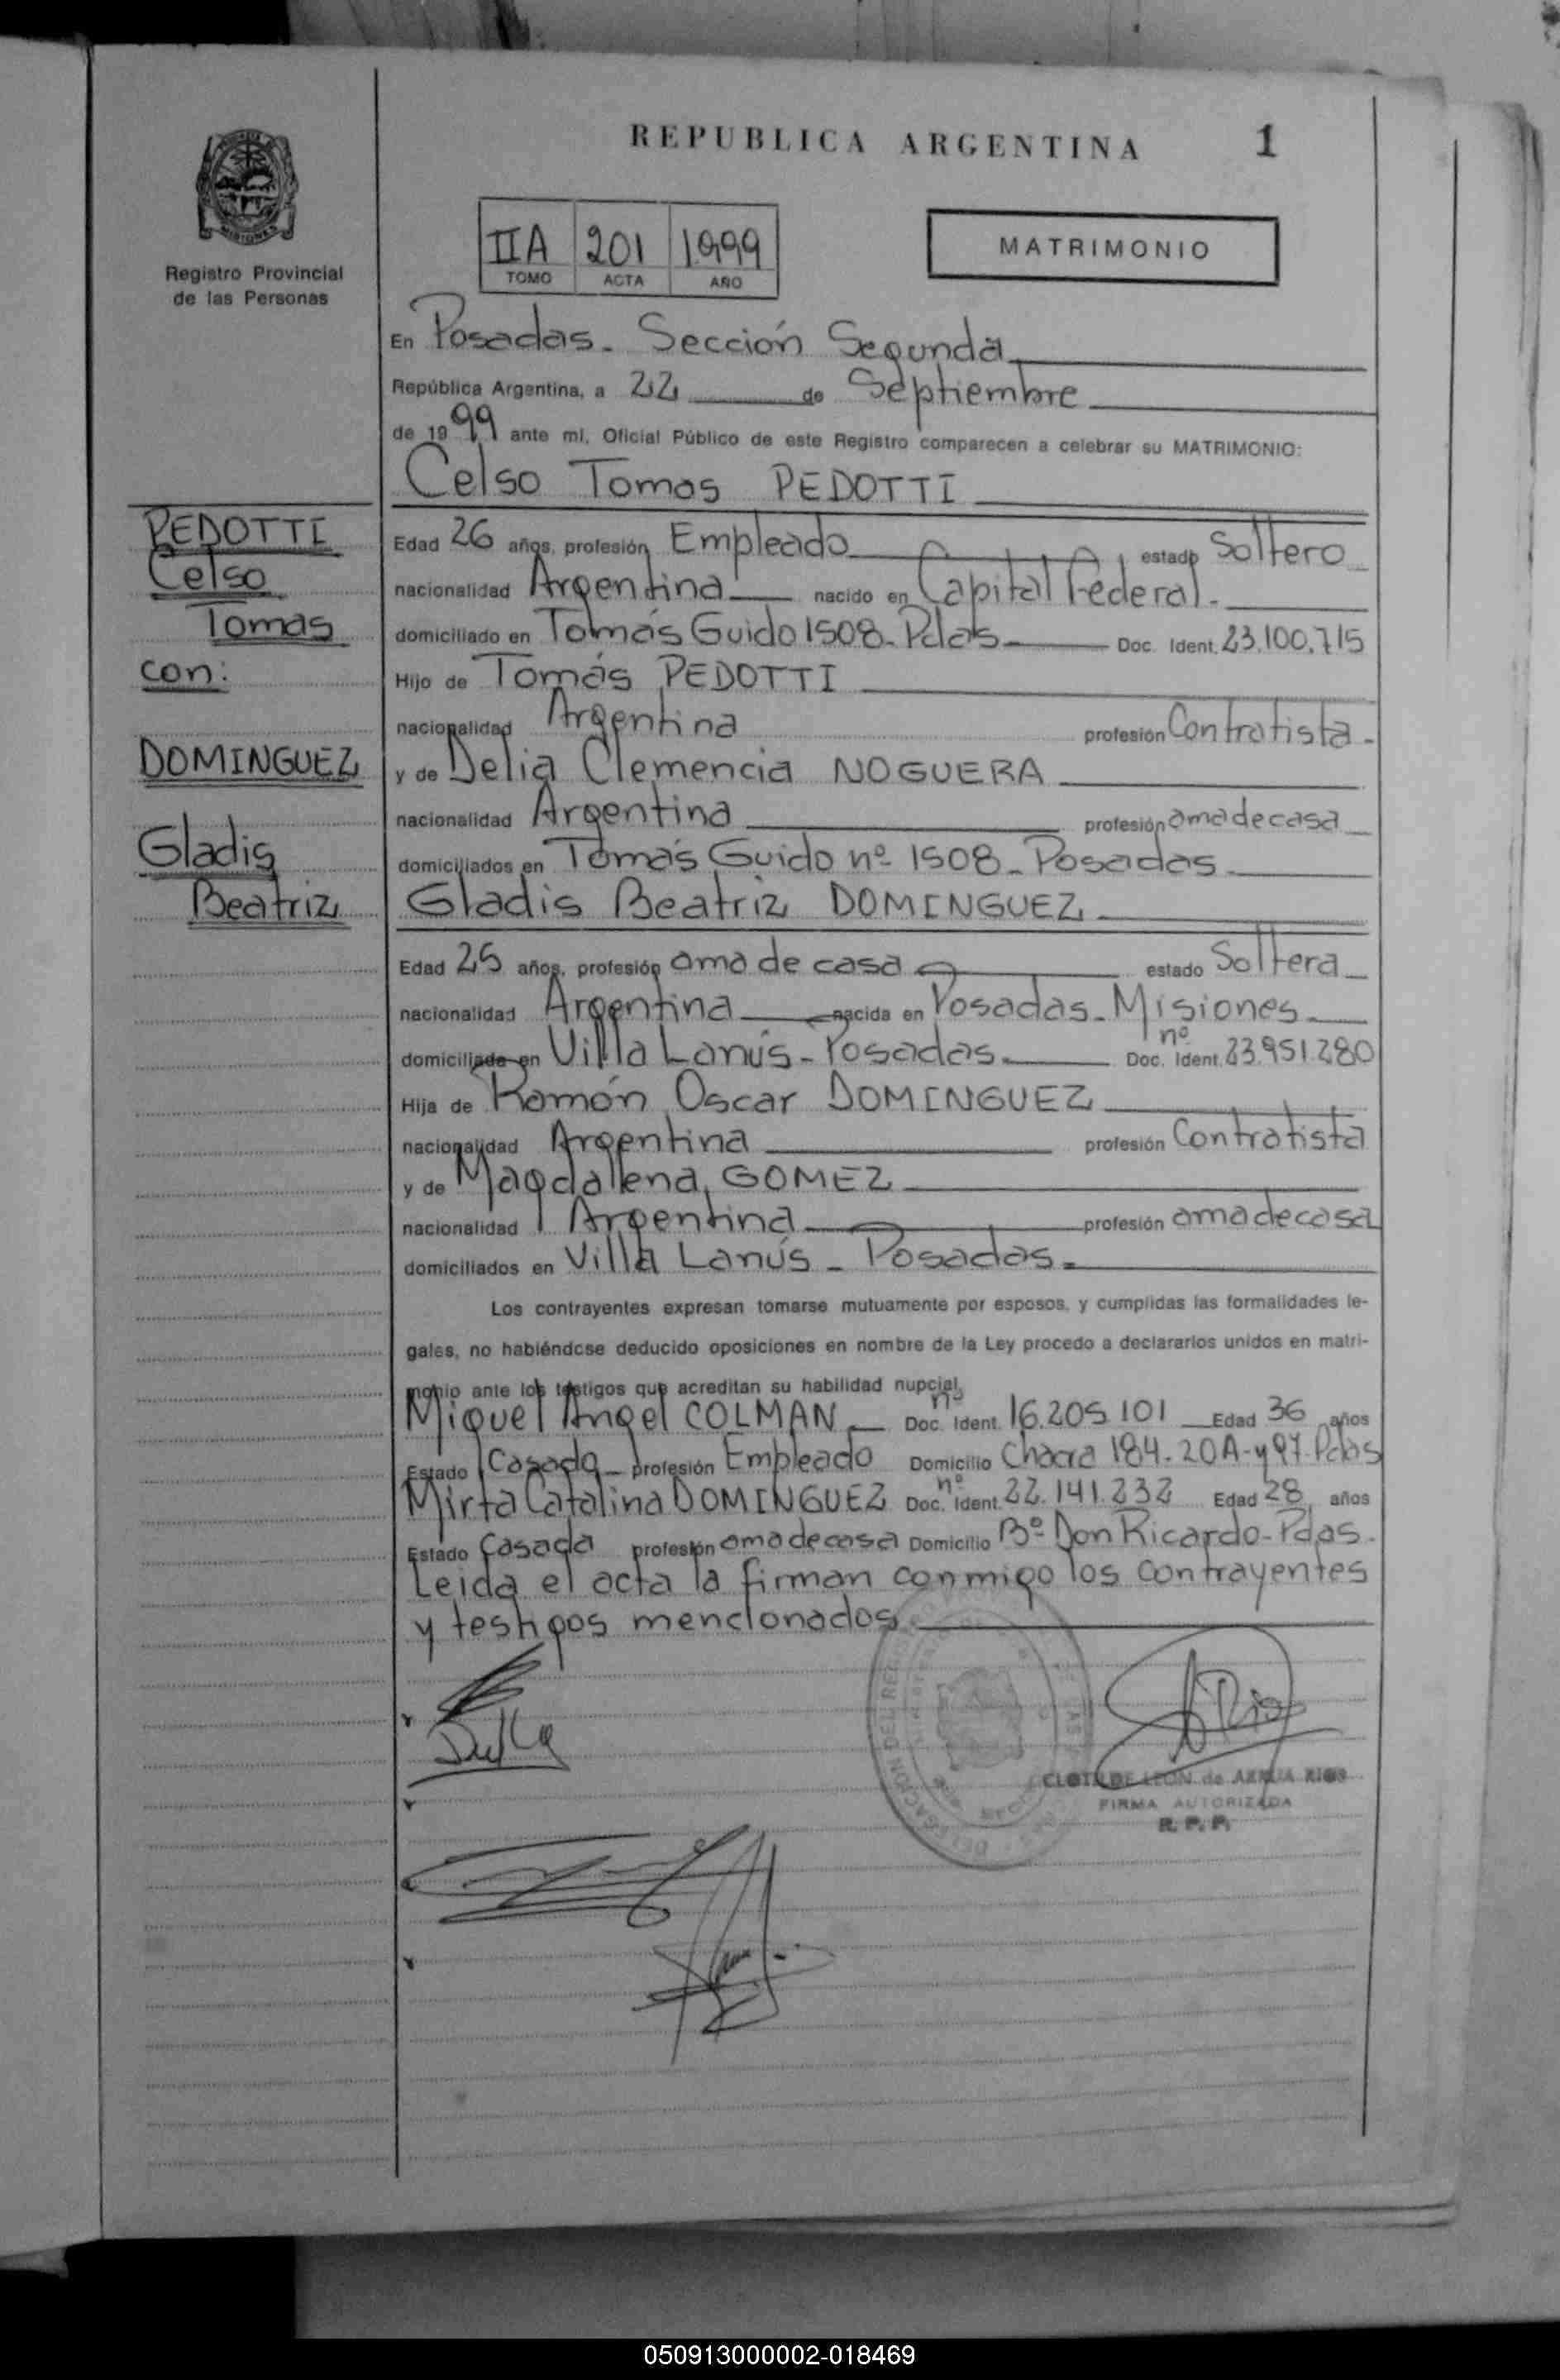 REPUBLICA ARGENTINA 1
MISIONES
Registro Provincial
de las Personas
IIA 201 1999
TOMO ACTA AÑO
MATRIMONIO
En Posadas - Sección Segunda
República Argentina, a 22 de Septiembre
de 1999 ante mi, Oficial Público de este Registro comparecen a celebrar su MATRIMONIO:
Celso Tomas PEDOTTI
PEDOTTI
Celso
Tomas
con:
DOMINGUEZ
Gladis
Beatriz
Edad 26 años, profesión Empleado estado Soltero
nacionalidad Argentina nacido en Capital Federal.
domiciliado en Tomás Guido 1508 - Pdas Doc. Ident. 23.100.715
Hijo de Tomás PEDOTTI
nacionalidad Argentina profesión Contratista.
y de Delia Clemencia NOGUERA
nacionalidad Argentina profesión ama de casa
domiciliados en Tomás Guido nº 1508 - Posadas
Gladis Beatriz DOMINGUEZ
Edad 25 años, profesión ama de casa estado Soltera
nacionalidad Argentina nacida en Posadas - Misiones
domiciliada en Villa Lanús - Posadas. Doc. Ident. nº 23.951.280
Hija de Ramón Oscar DOMINGUEZ
nacionalidad Argentina profesión Contratista
y de Magdalena GOMEZ
nacionalidad Argentina profesión ama de casa
domiciliados en Villa Lanús - Posadas.
Los contrayentes expresan tomarse mutuamente por esposos, y cumplidas las formalidades le-
gales, no habiéndose deducido oposiciones en nombre de la Ley procedo a declararlos unidos en matri-
monio ante los testigos que acreditan su habilidad nupcial.
Miguel Angel COLMAN Doc. Ident. nº 16.205.101 Edad 36 años
Estado Casado profesión Empleado Domicilio Chacra 184 - 20A - y 97 - Pdas
Mirta Catalina DOMINGUEZ Doc. Ident. nº 22.141.232 Edad 28 años
Estado Casada profesión ama de casa Domicilio Bº Don Ricardo - Pdas.
Leida el acta la firman conmigo los contrayentes
y testigos mencionados
FIRMA AUTORIZADA
R. P. P.
050913000002-018469